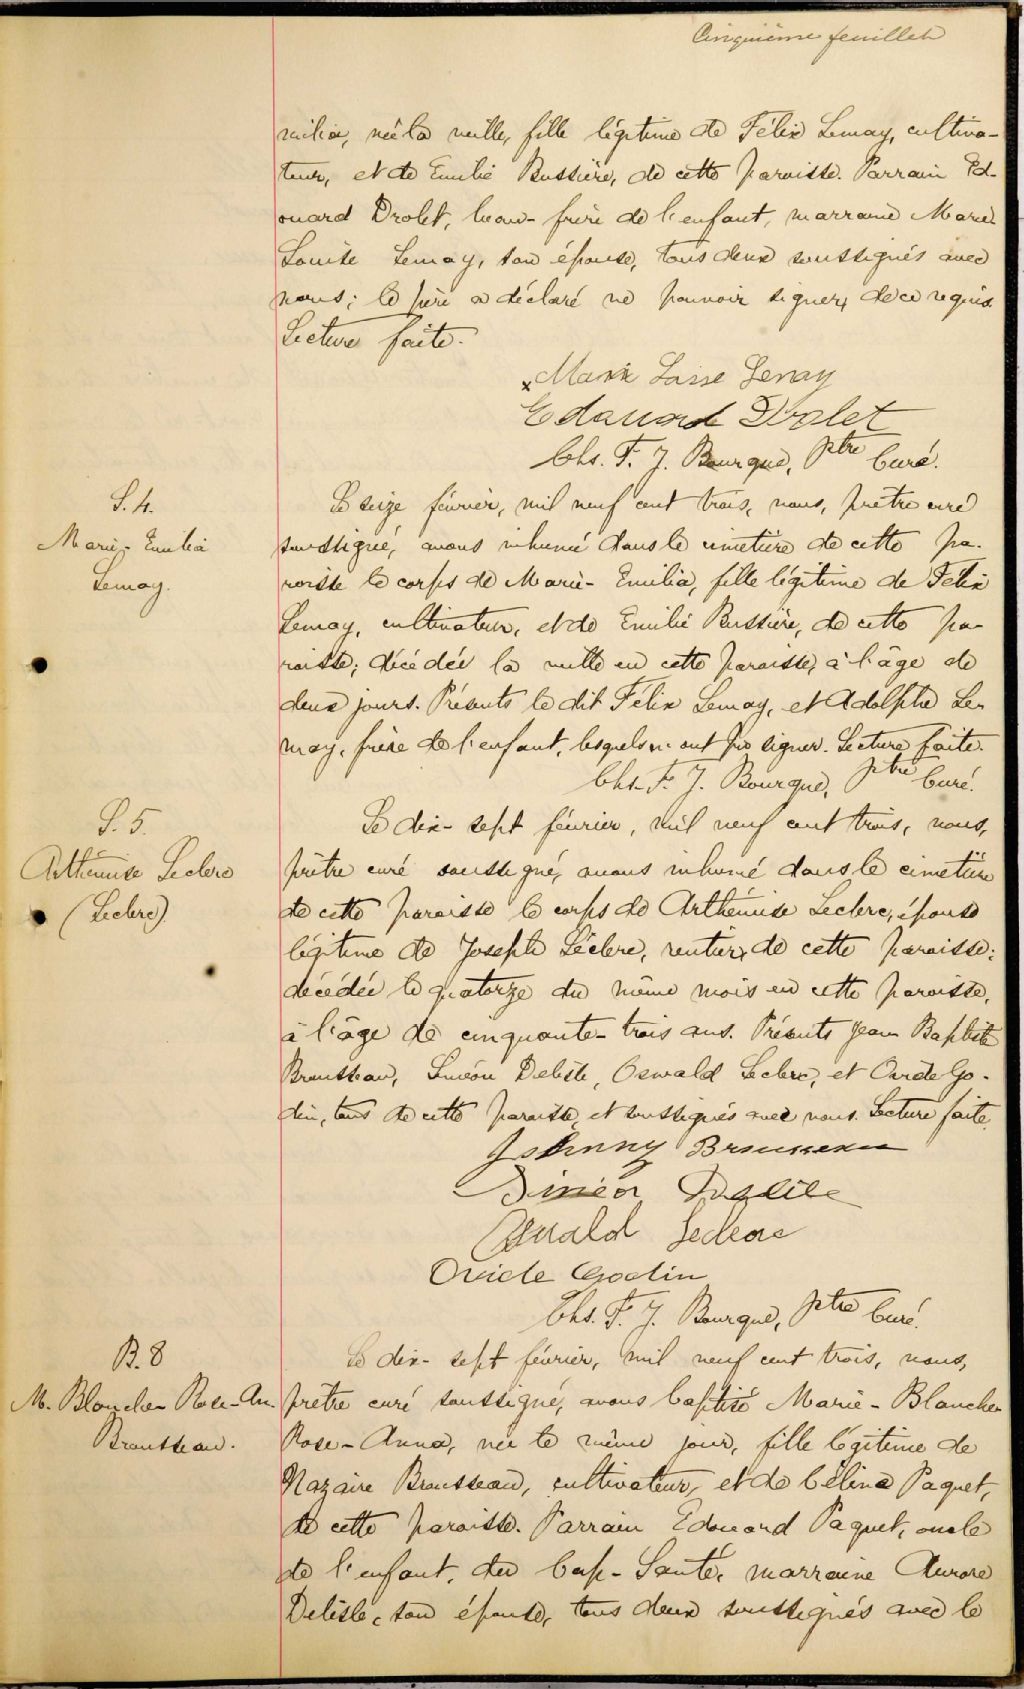 Cinquième feuillet
milia, née la veille, fille légitime de Félix Lemay, cultiva-
teur, et de Emilie Bussière, de cette paroisse. Parrain Ed-
ouard Drolet, beau-frère de l'enfant, marraine Marie
Louise Lemay, son épouse, tous deux soussignés avec
nous; le père a déclaré ne pouvoir signer, de ce requis.
Lecture faite.
x Marie Loise Lemay
Edouard Drolet
Chs. F. J. Bourque, Ptre Curé.
S. 4.
Marie-Emilia
Lemay.
Le seize février, mil neuf cent trois, nous, prêtre curé
soussigné, avons inhumé dans le cimetière de cette pa-
roisse le corps de Marie-Emilia, fille légitime de Félix
Lemay, cultivateur, et de Emilie Bussière, de cette pa-
roisse; décédée la veille en cette paroisse, à l'âge de
deux jours. Présents le dit Félix Lemay, et Adolphe Le-
may, frère de l'enfant, lesquels n'ont pu signer. Lecture faite.
Chs. F. J. Bourque, Ptre Curé.
S. 5.
Arthémise Leclerc
(Leclerc).
Le dix-sept février, mil neuf cent trois, nous,
prêtre curé soussigné, avons inhumé dans le cimetière
de cette paroisse le corps de Arthémise Leclerc, épouse
légitime de Joseph Léclerc, rentier, de cette paroisse;
décédée le quatorze du même mois en cette paroisse,
à l'âge de cinquante-trois ans. Présents Jean Baptiste
Brousseau, Siméon Delisle, Oswald Leclerc, et Ovide Go-
din, tous de cette paroisse, et soussignés avec nous. Lecture faite.
Johnny Brousseau
Siméon Delile
Oswald Leclerc
Ovide Godin
Chs. F. J. Bourque, Ptre Curé.
B. 8
M. Blanche-Rose-An.
Brousseau.
Le dix-sept février, mil neuf cent trois, nous,
prêtre curé soussigné, avons baptisé Marie-Blanche-
Rose-Anna, née le même jour, fille légitime de
Nazaire Brousseau, cultivateur, et de Célina Paquet,
de cette paroisse. Parrain Edouard Paquet, oncle
de l'enfant, du Cap-Santé, marraine Aurore
Delisle, son épouse, tous deux soussignés avec le